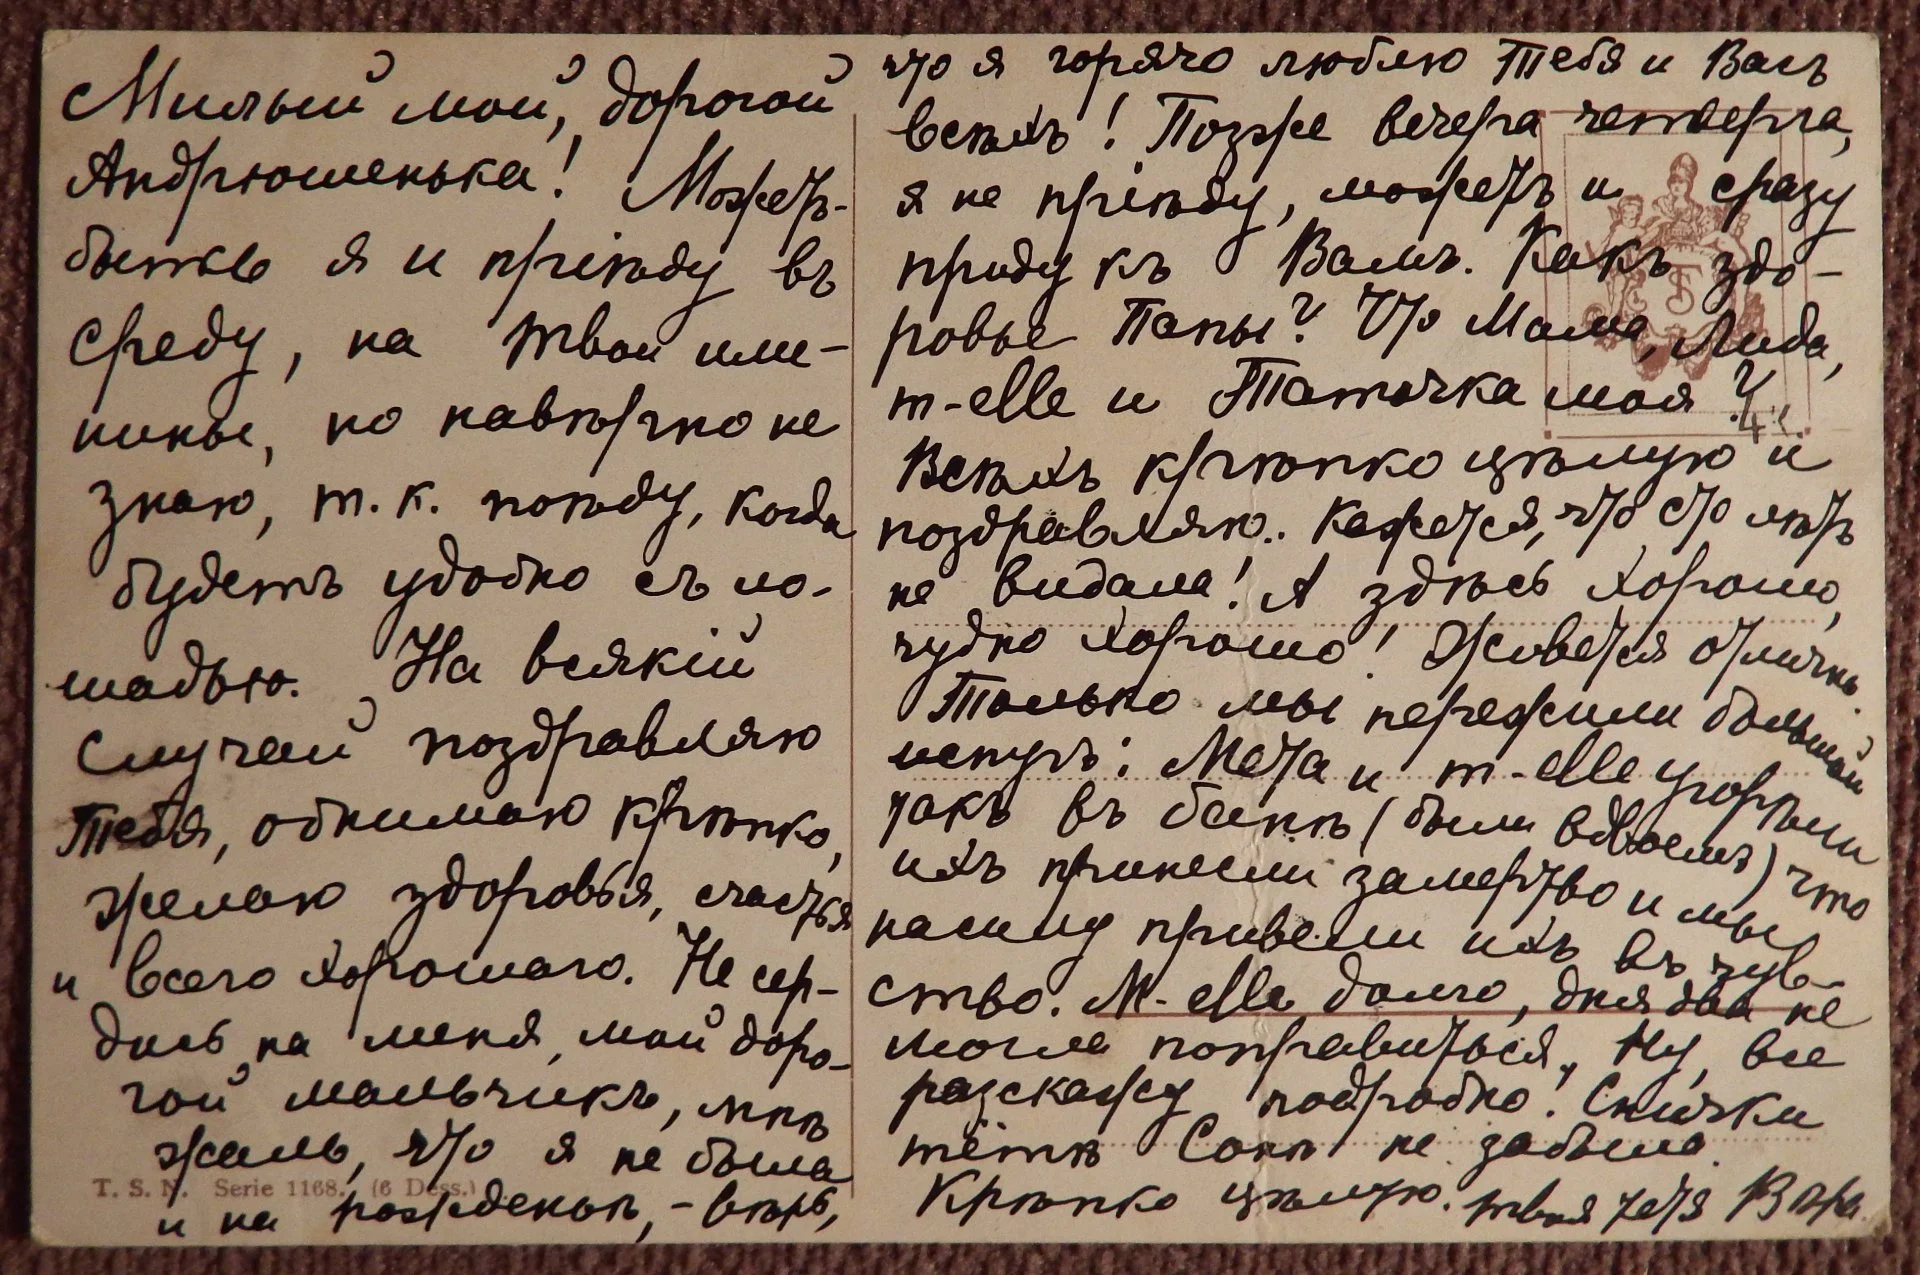 Милый мой, дорогой
Андрюшенька! Можетъ-
быть я и пріѣду въ
среду, на твои име-
нины, но навѣрно не
знаю, т.к. поѣду, когда
будетъ удобно съ ло-
шадью. На всякій
случай поздравляю
Тебя, обнимаю крѣпко,
желаю здоровья, счастья
и всего хорошаго. Не сер-
дись на меня, мой доро-
гой мальчикъ, мнѣ
жаль, что я не была
и на рожденьѣ, - вѣрь,
T. S. N. Serie 1168. (6 Dess.)
что я горячо люблю Тебя и Васъ
всѣхъ! Позже вечера четверга,
я не пріѣду, можетъ и сразу
приду къ Вамъ. Какъ здо-
ровье Папы? Что Мама, Лида,
m-elle и Таточка моя?
Всѣхъ крѣпко цѣлую и
поздравляю.. Кажется, что сто лѣтъ
не видала! А здѣсь хорошо,
чудно хорошо! Живется отлично.
Только мы пережили большой
испугъ: Мета и m-elle угорѣли
такъ въ банѣ (были вдвоемъ) что
ихъ принесли замертво и мы
насилу привели ихъ въ чув-
ство. M-elle долго, дня два не
могла поправиться, Ну, все
разскажу подробно! Снички
тётѣ Сонѣ не забыла.
Крѣпко цѣлую. твоя тетя Вара.